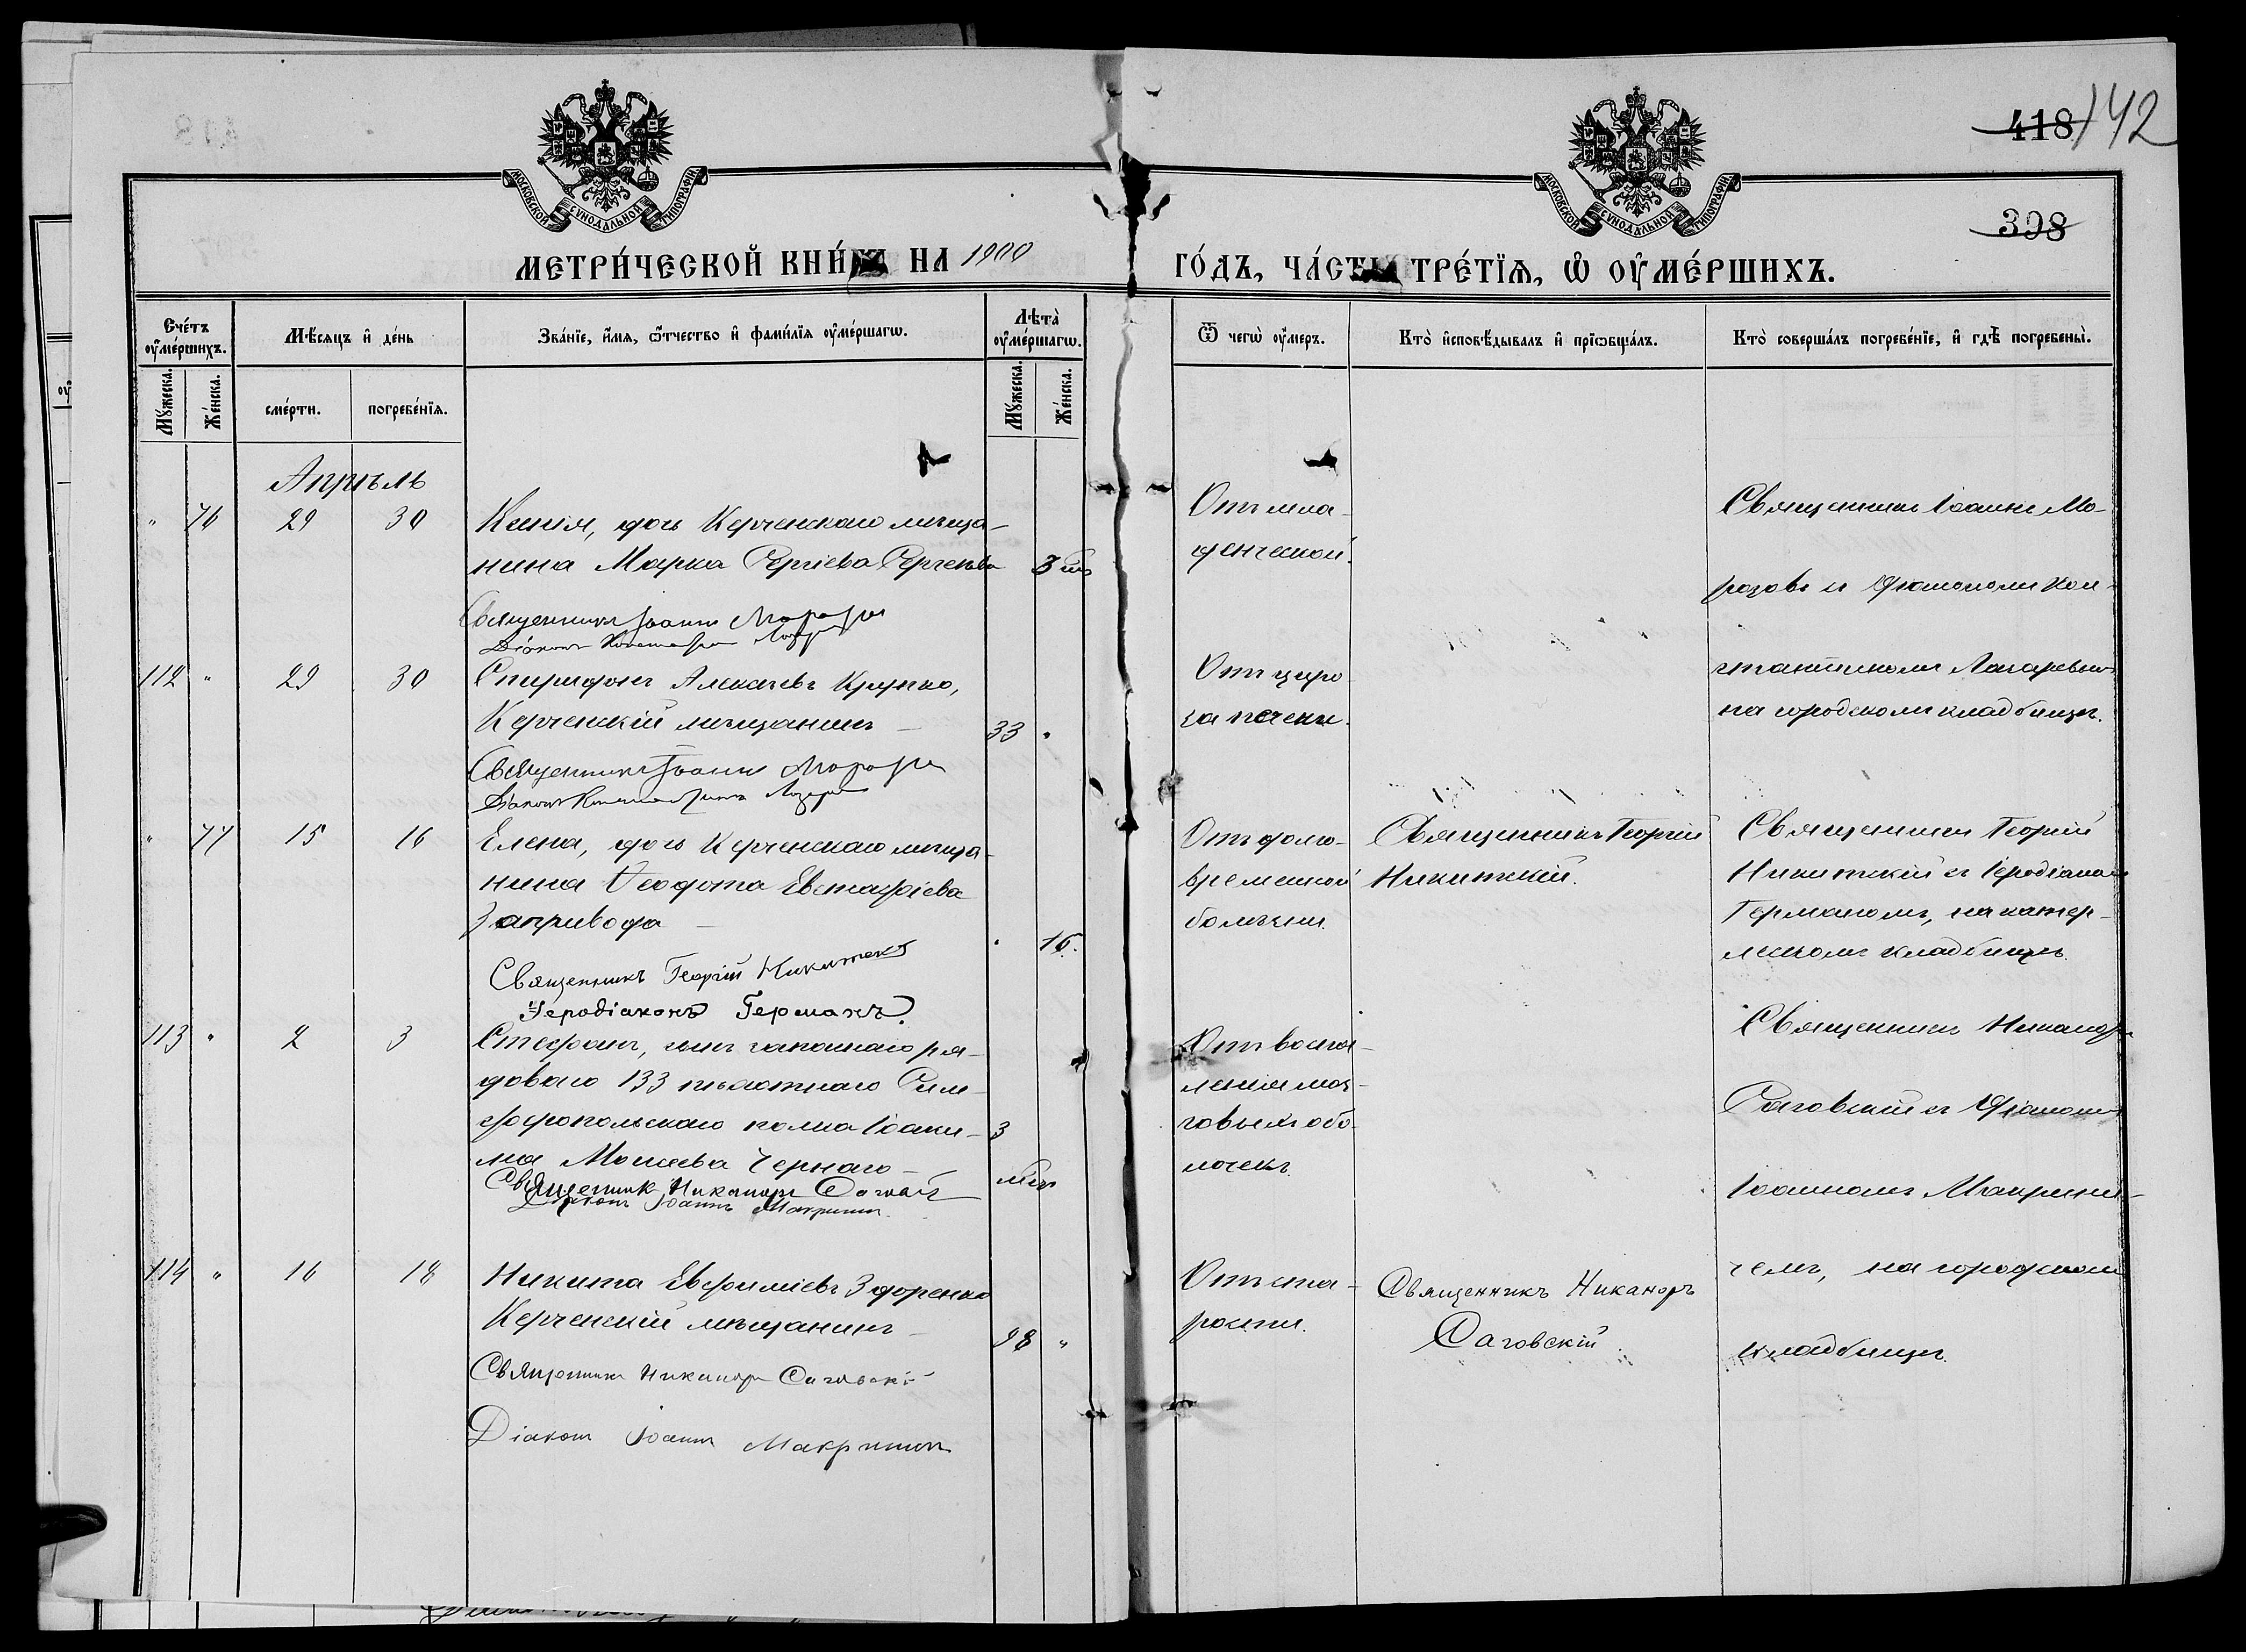 418 142
398
МОСКОВСКОЙ СѴНОДАЛЬНОЙ ТИПОГРАФІИ
МОСКОВСКОЙ СѴНОДАЛЬНОЙ ТИПОГРАФІИ
МЕТРИ́ЧЕСКОЙ КНИ́ГИ НА 1900 ГО́ДЪ, ЧА́СТЬ ТРЕ́ТЇѦ, Ѡ҆ ОУ҆МЕ́РШИХЪ.
Сче́тъ оу҆ме́ршихъ.
Мꙋ́жеска. Же́нска.
Мѣ́сѧцъ и҆ де́нь
сме́рти. погребе́нїѧ.
Зва́нїе, и҆́мѧ, ѻ҆́тчество и҆ фамі́лїѧ оу҆ме́ршагѡ.
Лѣта̀ оу҆ме́ршагѡ.
Мꙋ́жеска. Же́нска.
Ѿ чегѡ̀ оу҆́меръ.
Кто̀ и҆сповѣ́дывалъ и҆ прїѡбща́лъ.
Кто̀ соверша́лъ погребе́нїе, и҆ гдѣ̀ погребены̀.
Апрѣль
" 76 29 30 Ксенія, дочь Керченскаго мѣща-
нина Марка Сергіева 3
Священникъ Іоаннъ Морозовъ
Діаконъ
Отъ мла-
денческой.
Священникъ Іоаннъ Мо-
розовъ съ діакономъ Кон-
стантиномъ Лазаревымъ
на городскомъ кладбищѣ.
112 " 29 30 Спиридонъ Алексѣевъ Крупко,
Керченскій мѣщанинъ — 33 "
Священникъ Іоаннъ Морозовъ
Діаконъ Константинъ
Отъ цирро
за печени.
" 77 15 16 Елена, дочь Керченскаго мѣща-
нина Ѳеодота Евстафіева
Запривода — " 16.
Священникъ Георгій Никитскій
Іеродіаконъ Германъ.
Отъ долго-
временной
болѣзни.
Священникъ Георгій
Никитскій.
Священникъ Георгій
Никитскій съ Іеродіакономъ
Германомъ, на катер-
лезскомъ кладбищѣ.
113 " 2 3 Стефанъ, сынъ запаснаго ря-
дового 133 пѣхотнаго Сим-
феропольскаго полка Іоаки- 3
ма Моисеева Чернаго — мѣс
Священник Никаноръ Саговскій
Діаконъ Іоаннъ Макринич
Отъ воспа-
ленія моз-
говыхъ обо-
лочекъ.
Священникъ Никаноръ
Саговскій съ Діакономъ
Іоанномъ Макрини-
чемъ, на городскомъ
кладбищѣ.
114 " 16 18 Никита Евфиміевъ Здоренко
Керченскій мѣщанинъ — 98 "
Священникъ Никаноръ Саговскій
Діаконъ Іоаннъ Макринич
Отъ ста-
рости.
Священникъ Никаноръ
Саговскій.